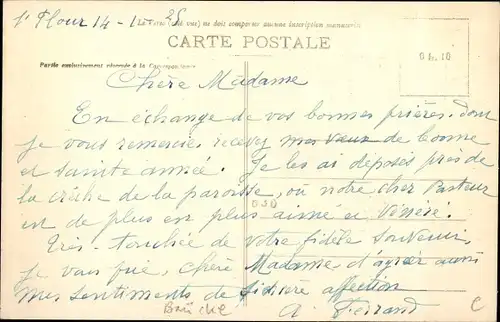 St Flour 14-1-25
(Le Recto (côté vue) ne doit comporter aucune inscription manuscrite
CARTE POSTALE
Partie exclusivement réservée à la Correspondance
0 fr. 10
Chère Madame
En échange de vos bonnes prières, dont
je vous remercie, recevez mes vœux de bonne
et sainte année. Je les ai déposés près de
la crèche de la paroisse, où notre cher Pasteur
est de plus en plus aimé et vénéré.
Très-touchée de votre fidèle souvenir,
je vous prie, chère Madame, d'agréer aussi
mes sentiments de sincère affection
A. Ferrand